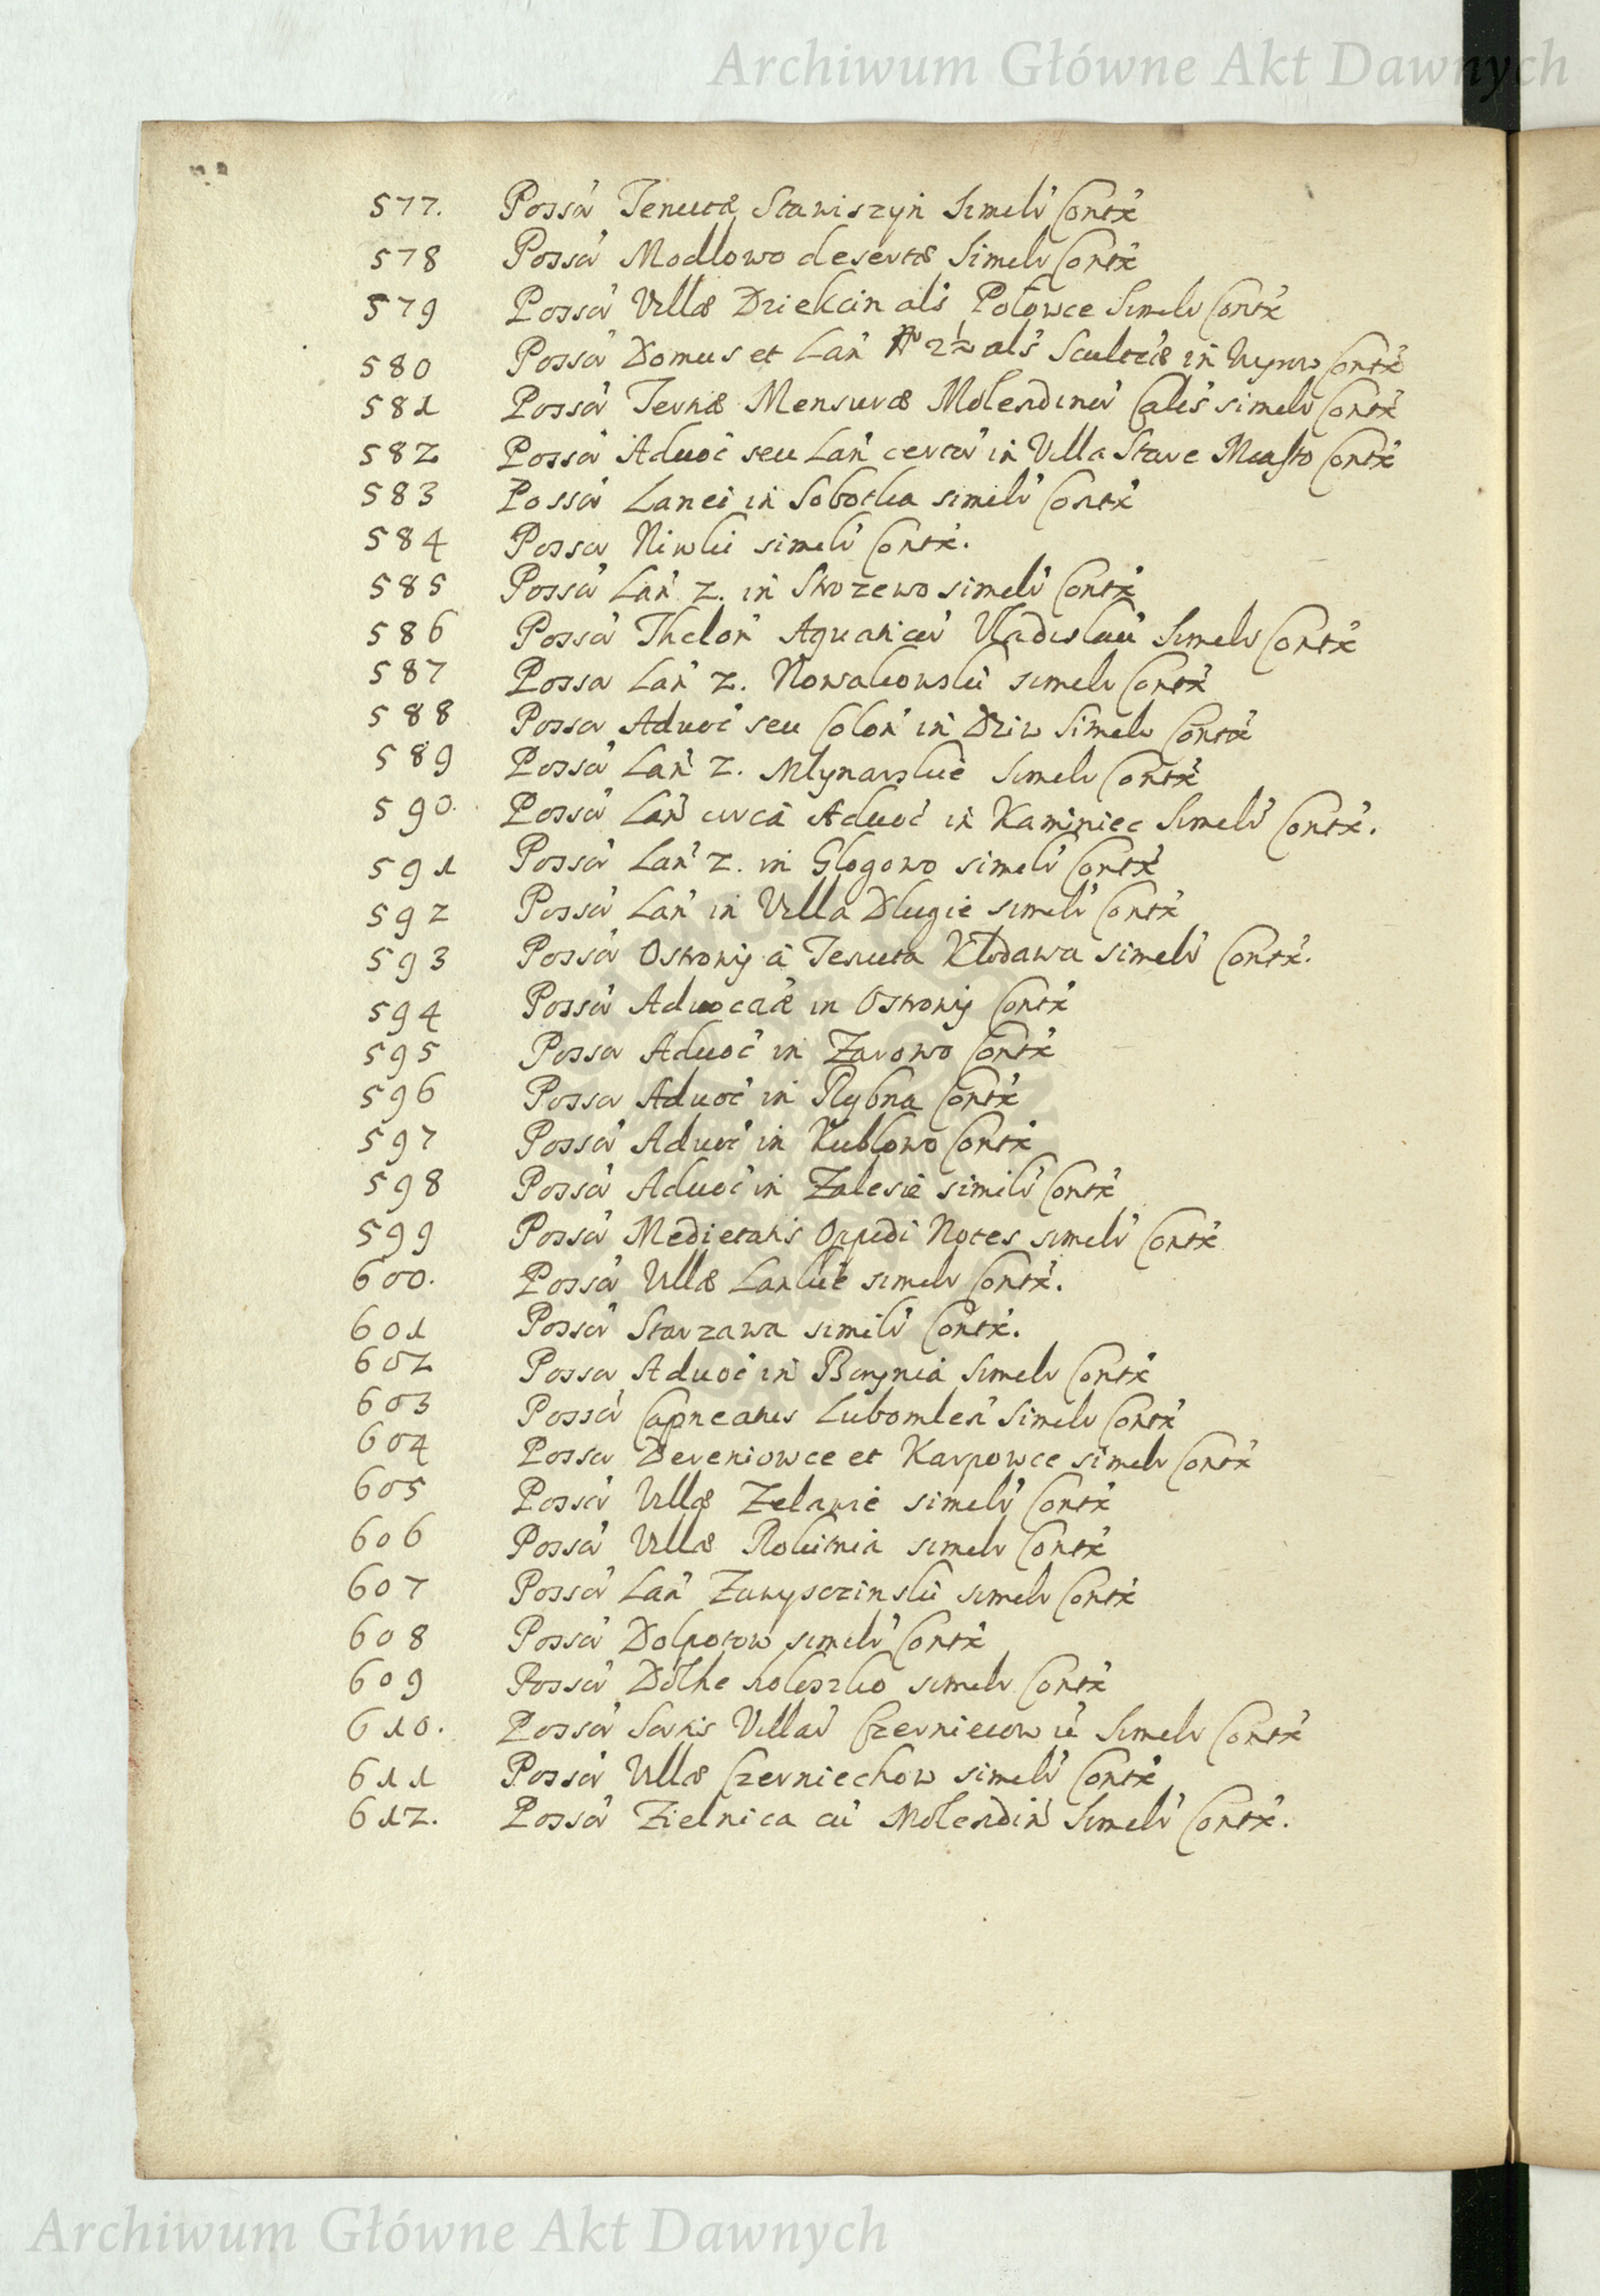 Archiwum Główne Akt Dawnych
577. Possã Tenutæ Stawiszyn Simeli Contx
578 Possã Modlowo desertæ Simeli Contx
579 Possã Villæ Dziekcin als Polowce Simeli Contx
580 Possã Domus et Lan 2½ als Scultæ in Contx
581 Possã Ternæ Mensuræ Molendinor Calis simeli Contx
582 Possã Advoc seu Lan certor in Villa Stare Miasto Contx
583 Possã Lanei in Sobotka simili Contx
584 Possa Niwki simeli Contx.
585 Possã Lan 2. in Strozewo simeli Contx
586 Possã Thelon Aquatici Vladislavi Simeli Contx
587 Possa Lan 2. Nowakowski simeli Contx
588 Possa Advoc seu Colon in Dziw Simeli Contx
589 Possã Lan 2. Mlynarskie Simeli Contx
590. Possã Lan circa Advoc in Kaminiec Simeli Contx.
591 Possã Lan 2. in Glogowo simeli Contx
592 Possã Lan in Villa Dlugie simeli Contx
593 Possã Ostrowy a Tenuta Klodawa simeli Contx.
594 Possã Advocaæ in Ostrowy Contx
595 Possa Advoc in Zarowo Contx
596 Possa Advoc in Rybna Contx
597 Possã Advoc in Kublowo Contx
598 Possã Advoc in Zalesie simili Contx
599 Possã Medietatis Oppidi Notes simeli Contx
600. Possã Villæ Lankie simeli Contx.
601 Possã Starzawa simili Contx.
602 Possa Advoc in Borynia Simeli Contx
603 Possã Capneatus Lubomlen Simeli Contx
604 Possa Dereniowce et Karpowce simeli Contx
605 Possã Villæ Zelanie simeli Contx
606 Possã Villæ Rokitnia simeli Contx
607 Possã Lan Zawysczinski simeli Contx
608 Possã Dolpotow simeli Contx
609 Possã Dolhe simeli Contx
610. Possã Sortis Villar Simeli Contx
611 Possã Villæ Czerniechow simeli Contx
612. Possã Zielnica cu Molendin Simeli Contx.
Archiwum Główne Akt Dawnych